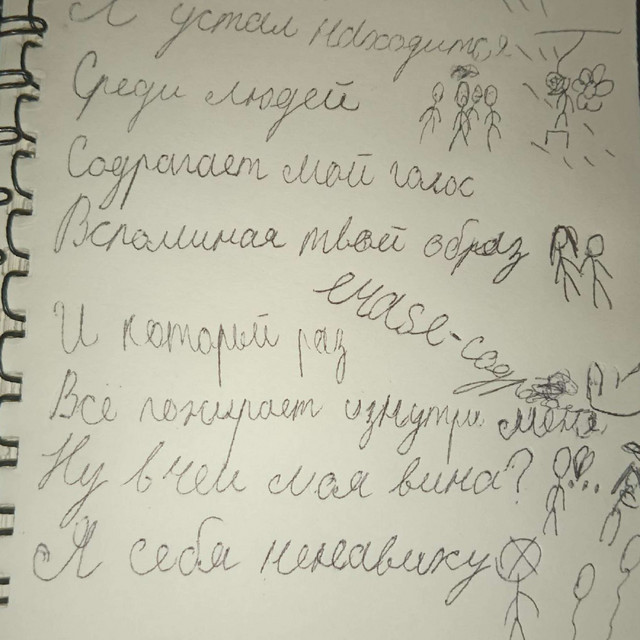 Я устал находится
Среди людей
Содрагает мой голос
Вспоминая твой образ
И который раз
Всё пожирает изнутри меня
Ну в чем моя вина?
Я себя ненавижу